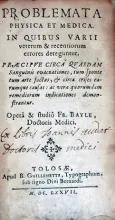 PROBLEMATA
PHYSICA ET MEDICA.
IN QUIBUS VARII
veterum & recentiorum
errores deteguntur.
PRÆCIPUE CIRCA QUASDAM
Sanguinis evacuationes, tum sponte
tum arte factas, & circa
causas: ac vera quorumdam
remediorum indicationes demon-
strantur.
Operâ & studio FR. BAYLE,
Doctoris Medici.
Ex libris
medici
TOLOSÆ,
Apud B. GUILLEMETTE, Typographum,
sub signo Divi Bernardi.